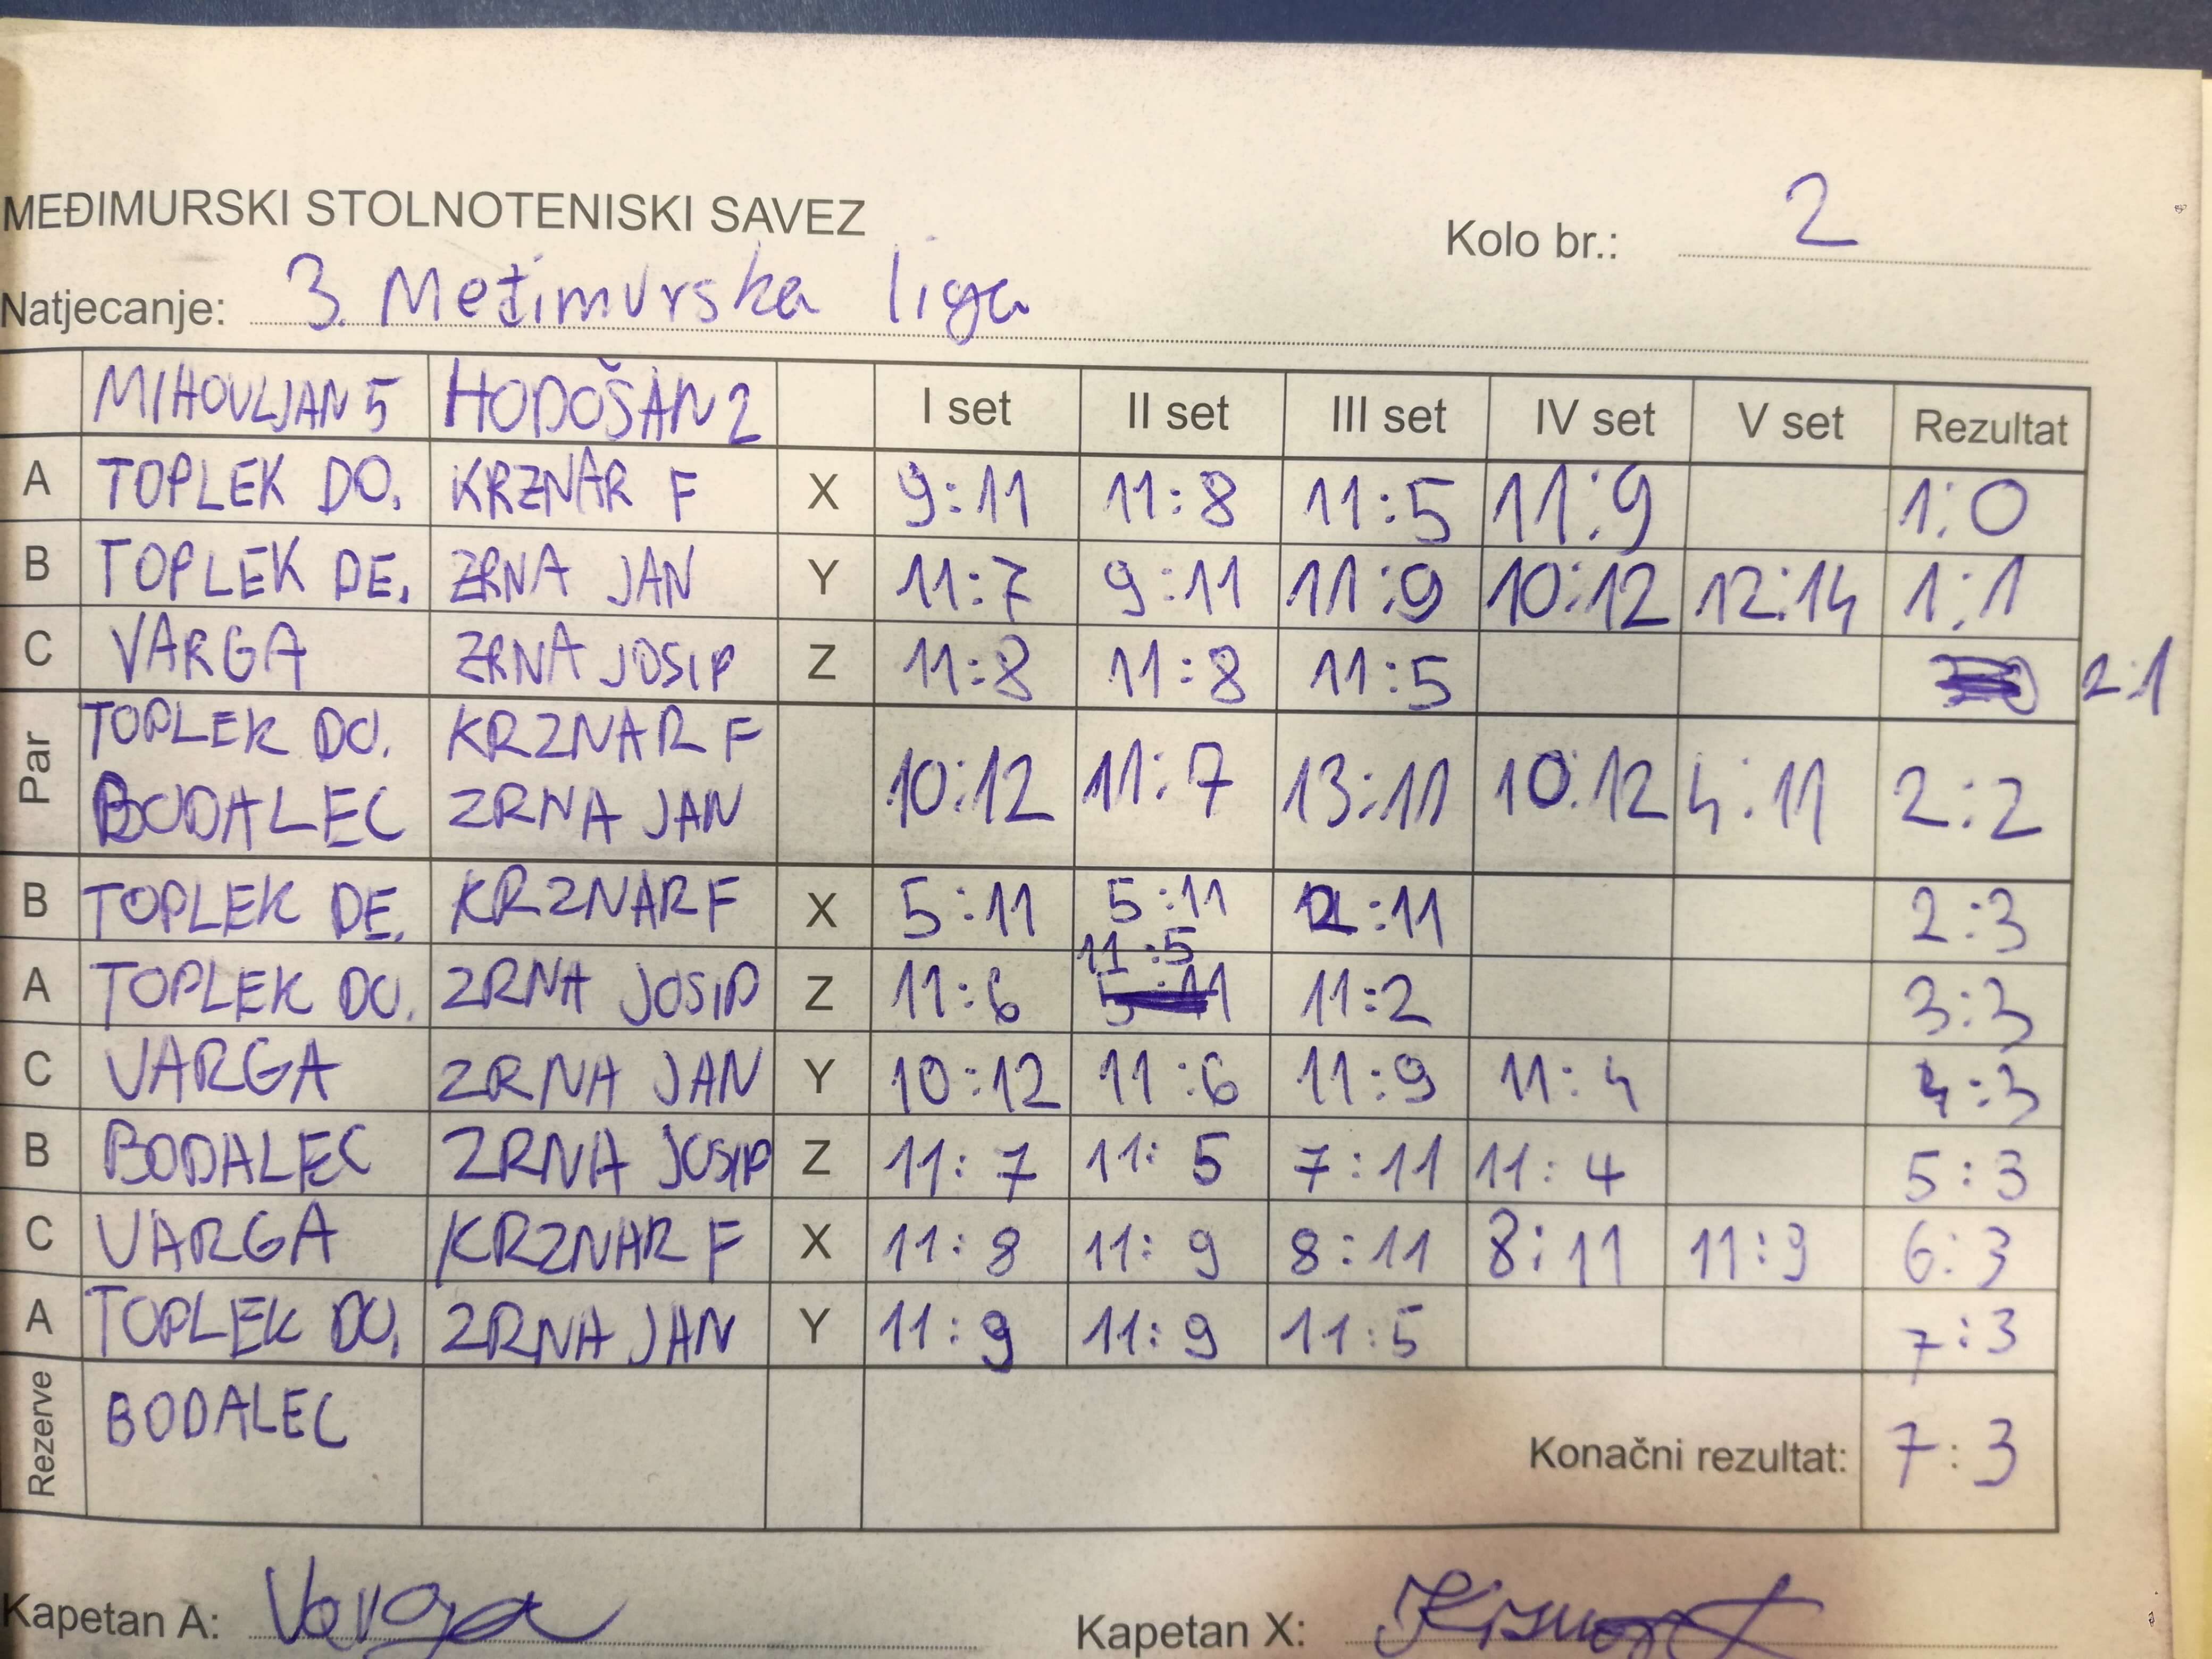 MEĐIMURSKI STOLNOTENISKI SAVEZ
Kolo br.: 2
Natjecanje: 3. Međimurska liga
MIHOVLJAN 5 HODOŠAN 2 I set II set III set IV set V set Rezultat
A TOPLEK DO. KRZNAR F X 9:11 11:8 11:5 11:9 1:0
B TOPLEK DE. ZRNA JAN Y 11:7 9:11 11:9 10:12 12:14 1:1
C VARGA ZRNA JOSIP Z 11:8 11:8 11:5 2:1
Par TOPLEK DO. KRZNAR F
BODALEC ZRNA JAN 10:12 11:7 13:11 10:12 4:11 2:2
B TOPLEK DE. KRZNAR F X 5:11 5:11 :11 2:3
A TOPLEK DO. ZRNA JOSIP Z 11:6 11:5 11:2 3:3
C VARGA ZRNA JAN Y 10:12 11:6 11:9 11:4 4:3
B BODALEC ZRNA JOSIP Z 11:7 11:5 7:11 11:4 5:3
C VARGA KRZNAR F X 11:8 11:9 8:11 8:11 11:9 6:3
A TOPLEK DO. ZRNA JAN Y 11:9 11:9 11:5 7:3
Rezerve BODALEC Konačni rezultat: 7:3
Kapetan A: Varga Kapetan X: